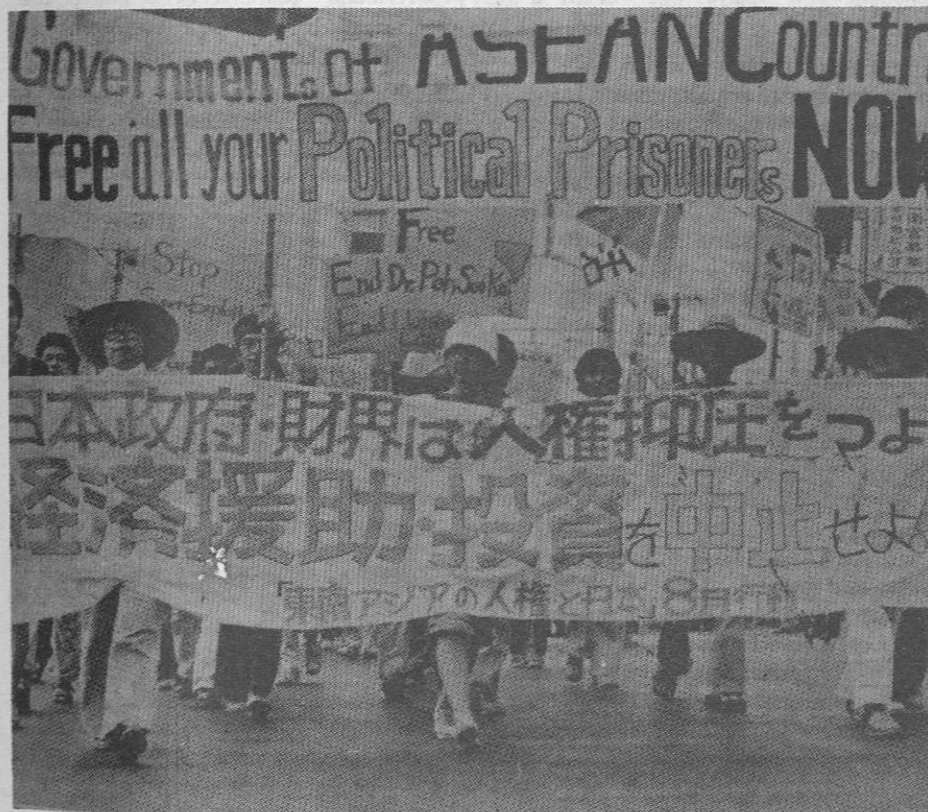 Governments of ASEAN Countr
Free all your Political Prisoners NOW
Stop
Free
End Dr. Poh Soo Kai
End
日本政府・財界は人権抑圧をつよ
経済援助・投資を中止せよ!
「東南アジアの人権と日本」8月行動